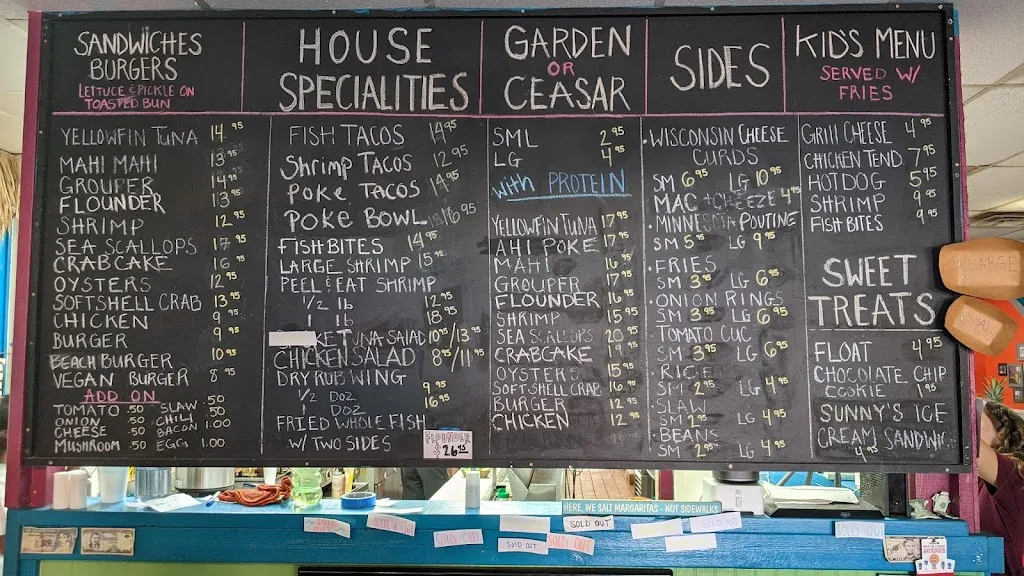 SANDWICHES
BURGERS
LETTUCE & PICKLE ON
TOASTED BUN
YELLOWFIN TUNA 14.95
MAHI MAHI 13.95
GROUPER 14.95
FLOUNDER 13.95
SHRIMP 12.95
SEA SCALLOPS 17.95
CRABCAKE 16.95
OYSTERS 12.95
SOFTSHELL CRAB 13.95
CHICKEN 9.95
BURGER 9.95
BEACH BURGER 10.95
VEGAN BURGER 8.95
ADD ON
TOMATO .50 SLAW .50
ONION .50 CHILI .50
CHEESE .50 BACON 1.00
MUSHROOM .50 EGG 1.00
HOUSE
SPECIALITIES
FISH TACOS 14.95
SHRIMP TACOS 12.95
POKE TACOS 14.95
POKE BOWL 16.95
FISH BITES 14.95
LARGE SHRIMP 15.95
PEEL & EAT SHRIMP
1/2 lb 12.95
1 lb 18.95
KE TUNA SALAD 10.95/13.95
CHICKEN SALAD 8.95/11.95
DRY RUB WING
1/2 DOZ 9.95
1 DOZ 16.95
FRIED WHOLE FISH
W/ TWO SIDES
FLOUNDER
$26.95
GARDEN
OR
CEASAR
SML 2.95
LG 4.95
WITH PROTEIN
YELLOWFIN TUNA 17.95
AHI POKE 17.95
MAHI 16.95
GROUPER 17.95
FLOUNDER 16.95
SHRIMP 15.95
SEA SCALLOPS 20.95
CRABCAKE 19.95
OYSTERS 15.95
SOFTSHELL CRAB 16.95
BURGER 12.95
CHICKEN 12.95
SIDES
WISCONSIN CHEESE
CURDS
SM 6.95 LG 10.95
MAC & CHEEZE 4.95
MINNESOTA POUTINE
SM 5.95 LG 9.95
FRIES
SM 3.95 LG 6.95
ONION RINGS
SM 3.95 LG 6.95
TOMATO CUC
SM 3.95 LG 6.95
RICE
SM 2.95 LG 4.95
SLAW
SM 2.95 LG 4.95
BEANS
SM 2.95 LG 4.95
KID'S MENU
SERVED W/
FRIES
GRILL CHEESE 4.95
CHICKEN TEND 7.95
HOTDOG 5.95
SHRIMP 9.95
FISH BITES 9.95
SWEET
TREATS
FLOAT 4.95
CHOCOLATE CHIP
COOKIE 1.95
SUNNY'S ICE
CREAM SANDWIC
4.95
LARGE
SMALL
HERE, WE SALT MARGARITAS - NOT SIDEWALKS
SOLD OUT
SOLD OUT
SOLD OUT
SOLD OUT
SOLD OUT
SOLD OUT
SOLD OUT
SOLD OUT